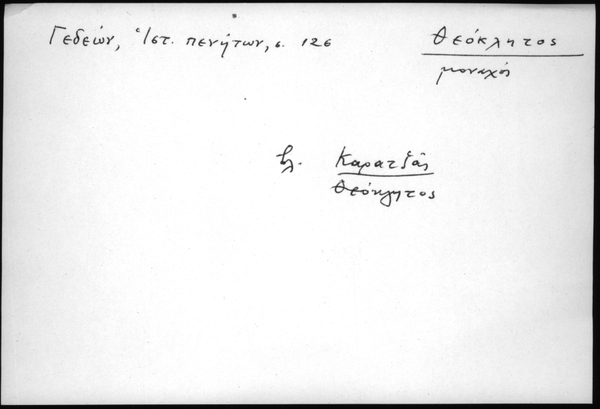 Γεδεών, Ἱστ. πενήτων, σ. 126
Θεόκλητος
μοναχός
βλ. Καρατζᾶς
Θεόκλητος